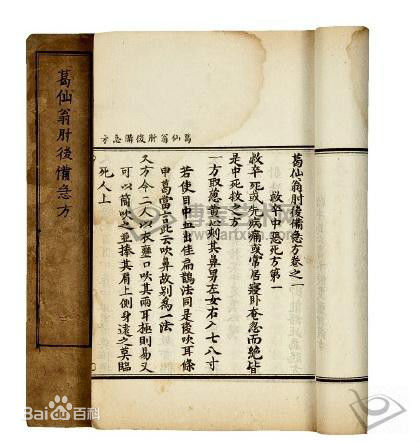 葛仙翁肘後備急方
葛仙翁肘後備急方
葛仙翁肘後備急方卷之一
救卒中惡死方第一
救卒死或先病痛或常居寢卧奄忽而絶皆
是中死救之方
一方取葱黄心刺其鼻男左女右入七八寸
若使目中血出佳扁鵲法同是後吹耳條
中葛當言此云吹鼻故别爲一法
又方令二人以衣壅口吹其兩耳極則易又
可以筒吹之並捧其肩上側身遠之莫臨
死人上
Bai百科